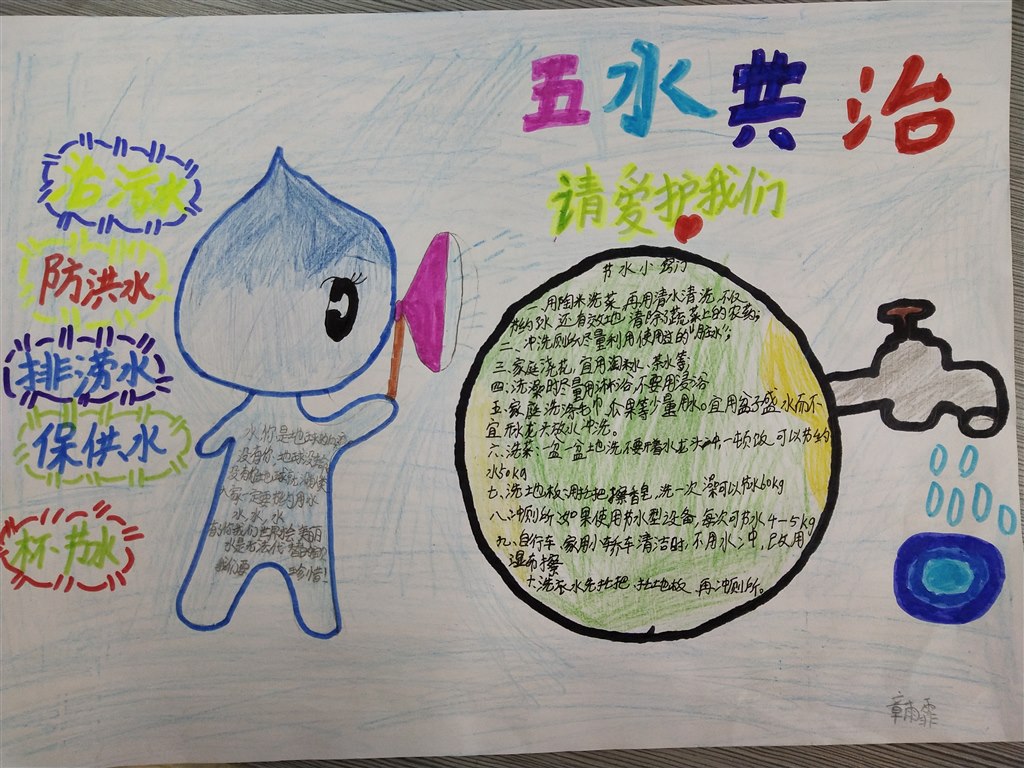 五水共治
请爱护我们
治污水
防洪水
排涝水
保供水
杯节水
节水小窍门
一、用陶米洗菜,再用清水清洗,不仅
节约了水,还有效地清除了蔬菜上的农药;
二、冲洗厕所尽量利用使用过的"脏水";
三、家庭浇花,宜用淘米水、茶水等;
四、洗澡时尽量用淋浴,不要用浸浴
五、家庭洗涤毛巾、瓜果等少量用水。宜用盆子盛水而不
宜开水龙头放水冲洗。
六、洗菜:一盆一盆地洗不要开着水龙头冲,一顿饭可以节约
水50kg
七、洗地板:用拖把擦香皂,洗一次澡可以节水60kg
八、冲厕所:如果使用节水型设备,每次可节水4-5kg
九、自行车、家用小轿车清洁时,不用水冲,改用
湿布擦
十、洗衣水先拖把、拖地板,再冲厕所。
水,你是地球的
没有你,地球
没有你,地球就
人家一定要把约用水
水,水,水
我们世界
我们要 珍惜!
章雨霏